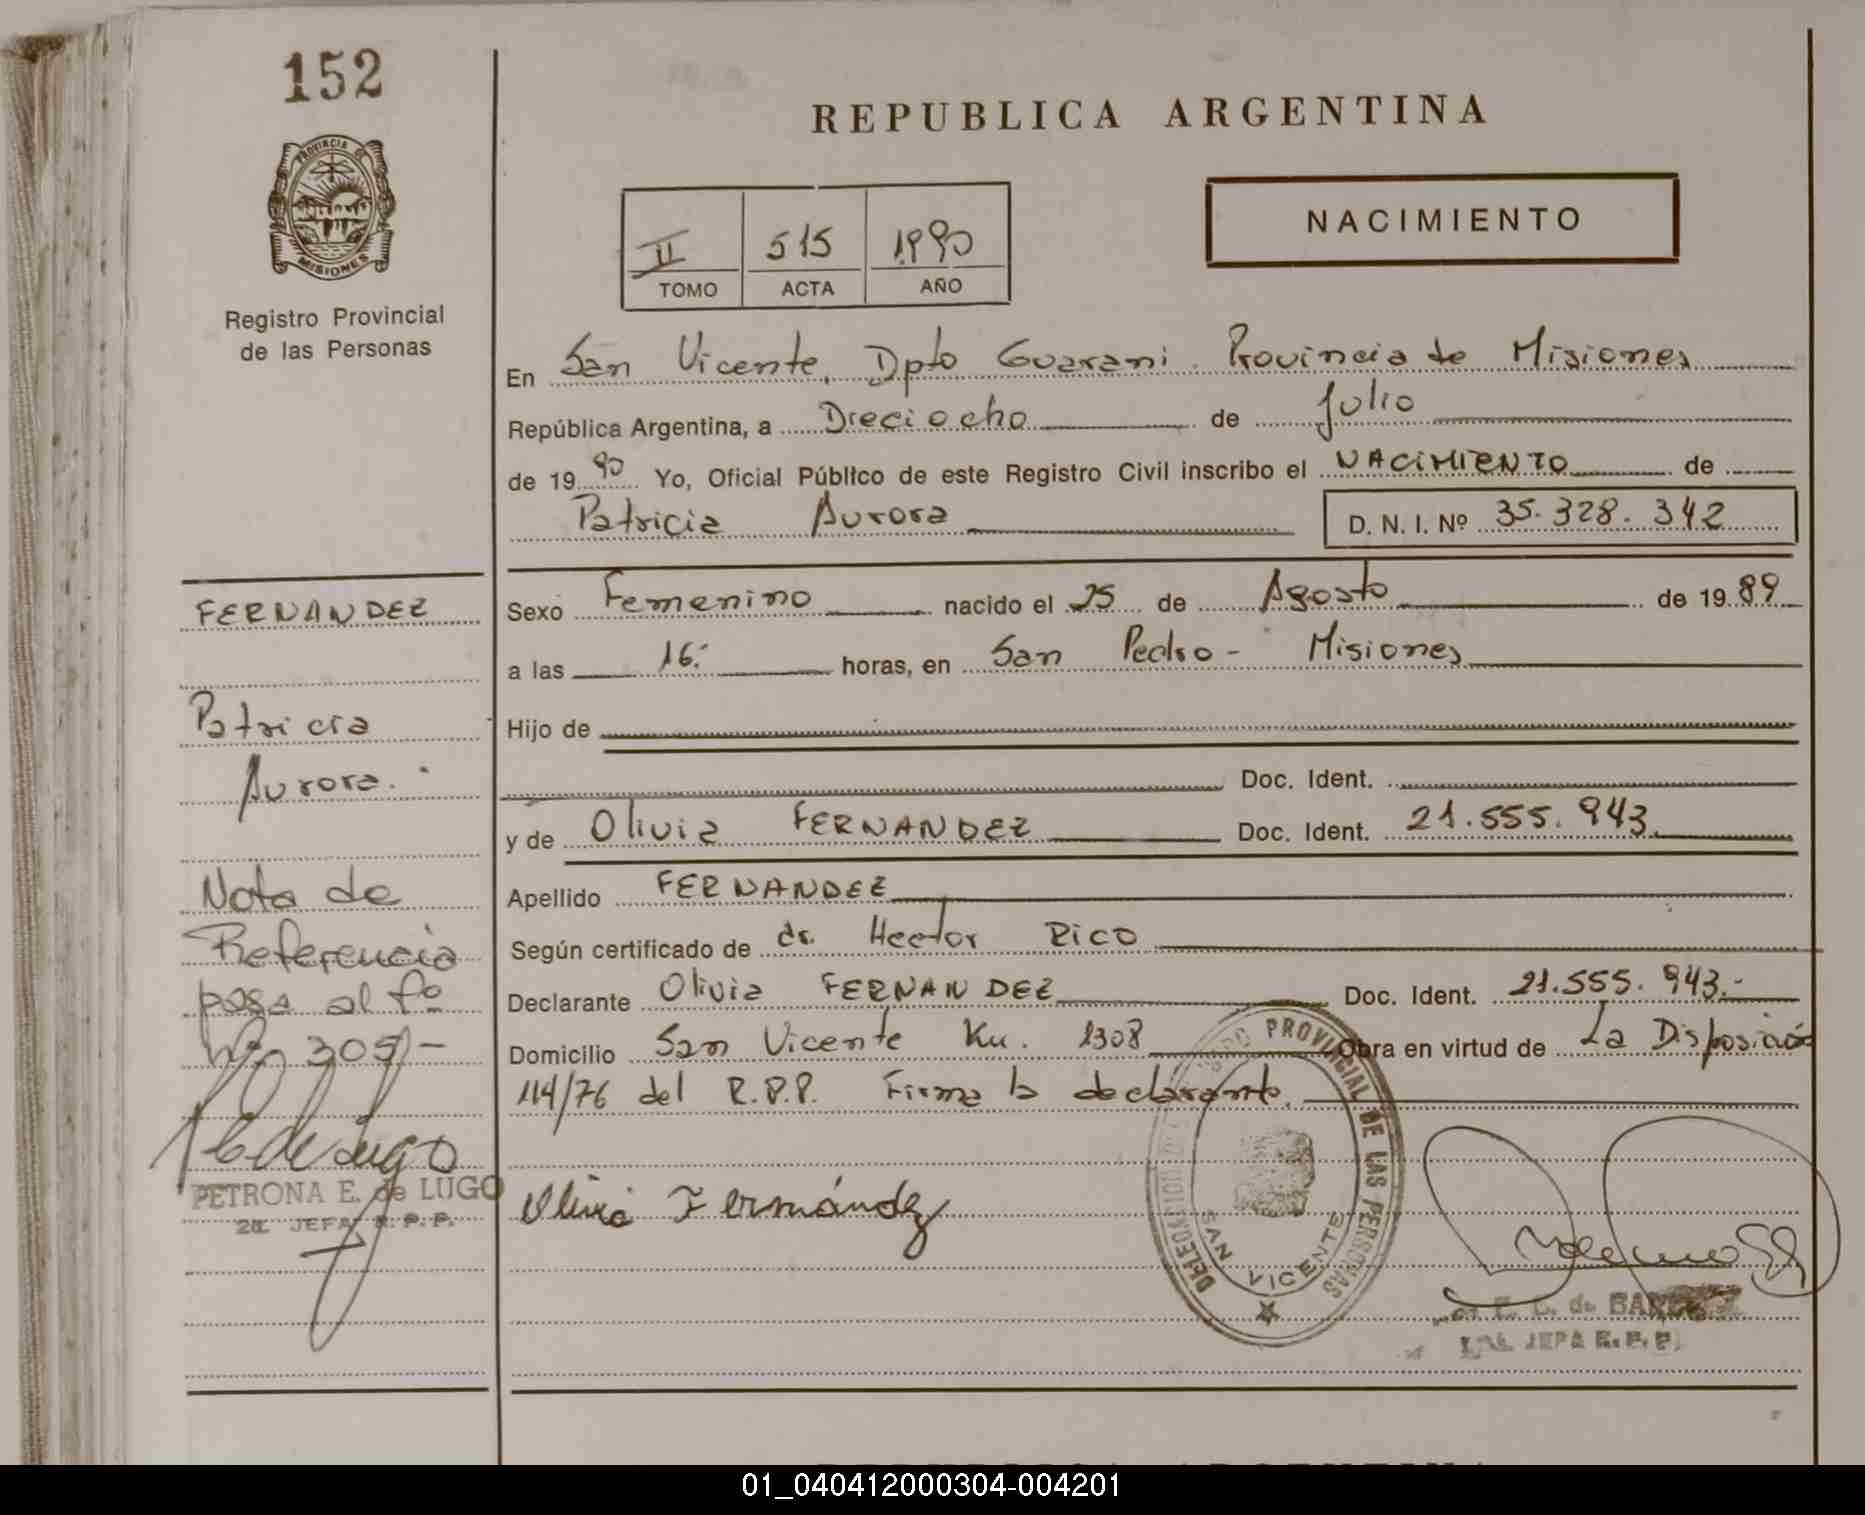 152
PROVINCIA DE
MISIONES
Registro Provincial
de las Personas
REPUBLICA ARGENTINA
II 515 1990
TOMO ACTA AÑO
NACIMIENTO
En San Vicente, Dpto Guarani. Provincia de Misiones
República Argentina, a Dieciocho de Julio
de 19 90 Yo, Oficial Público de este Registro Civil inscribo el NACIMIENTO de
Patricia Aurora D. N. I. Nº 35.328.342
Sexo Femenino nacido el 25 de Agosto de 19 89
a las 16.- horas, en San Pedro - Misiones
Hijo de
Doc. Ident.
y de Olivia FERNANDEZ Doc. Ident. 21.555.943
Apellido FERNANDEZ
Según certificado de dr. Hector Rico
Declarante Olivia FERNANDEZ Doc. Ident. 21.555.943.-
Domicilio San Vicente Km. 1308 Obra en virtud de La Disposición
114/76 del R.P.P. Firma la declarante.
Olivia Fernández
PROVINCIAL DE LAS PERSONAS
SAN VICENTE
E. L. de
JEFA R. P. P.
FERNANDEZ
Patricia
Aurora.
Nota de
Referencia
pasa al fº
Nº 305/-
PEdeLugo
PETRONA E. de LUGO
2a. JEFA R. P. P.
01_040412000304-004201